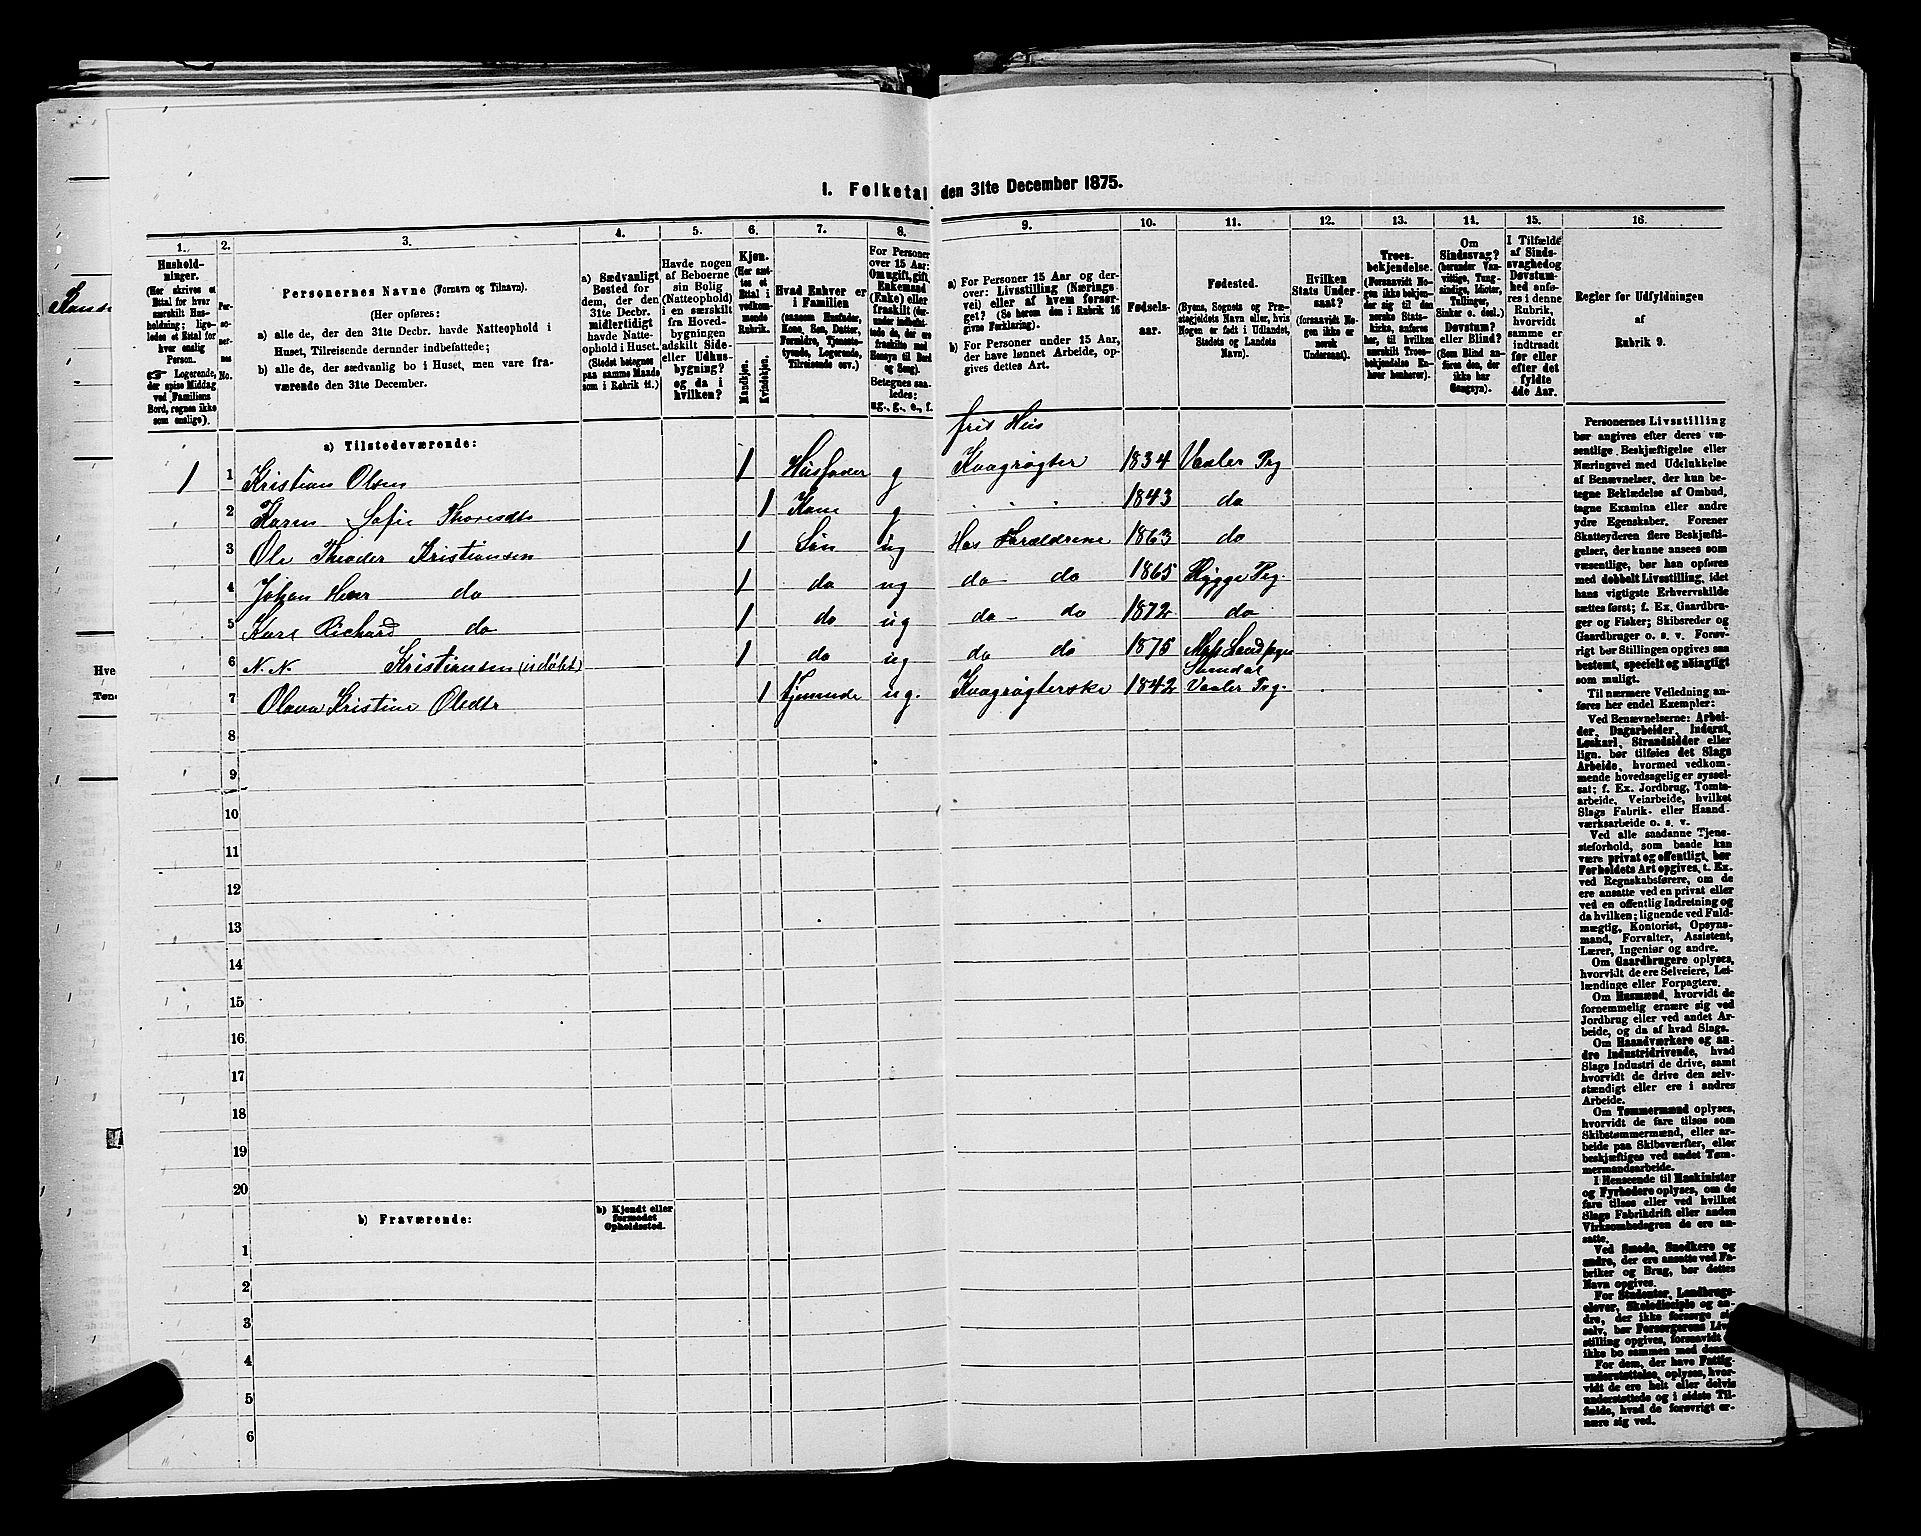 I. Folketal den 31te December 1875.
1. 2. 3. 4. 5. 6. 7. 8. 9. 10. 11. 12. 13. 14. 15. 16.
Hushold-
ninger.
(Her skrives et
Ettal for hver
særskilt Hus-
holdning; lige-
ledes et Ettal for
hver enslig
Person.
☞ Logerende,
der spise Middag
ved Familiens
Bord, regnes ikke
som enslige).
Per-
so-
ner-
nes
No.
Personernes Navne (Fornavn og Tilnavn).
(Her opføres:
a) alle de, der den 31te Decbr. havde Natteophold i
Huset, Tilreisende derunder indbefattede;
b) alle de, der sædvanlig bo i Huset, men vare fra-
værende den 31te December.
a) Sædvanligt
Bosted for
dem, der den
31te Decbr.
midlertidigt
havde Natte-
ophold i Huset.
(Stedet betegnes
paa samme Maade
som i Rubrik 11.)
Havde nogen
af Beboerne
sin Bolig
(Natteophold)
i en særskilt
fra Hoved-
bygningen
adskilt Side-
eller Udhus-
bygning?
og da i
hvilken?
Kjøn.
(Her sæt-
tes et
Ettal i
vedkom-
mende
Rubrik.
Mandkjøn.
Kvindekjøn.
Hvad Enhver er
i Familien
(saasom Husfader,
Kone, Søn, Datter,
Forældre, Tjeneste-
tyende, Logerende,
Tilreisende osv.)
For Personer
over 15 Aar:
Om ugift, gift,
Enkemand
(Enke) eller
fraskilt (der-
under indbefat-
tede de, der ere
fraskilte med
Hensyn til Bord
og Seng).
Betegnes saa-
ledes:
ug., g., e., f.
a) For Personer 15 Aar og der-
over: Livsstilling (Nærings-
vei) eller af hvem forsør-
get? (Se herom den i Rubrik 16
givne Forklaring).
b) For Personer under 15 Aar,
der have lønnet Arbeide, op-
gives dettes Art.
Fødsels-
aar.
Fødested.
(Byens, Sognets og Præ-
stegjeldets Navn eller, hvis
Nogen er født i Udlandet,
Stedets og Landets
Navn).
Hvilken
Stats Under-
saat?
(forsaavidt No-
gen ikke er
norsk
Undersaat).
Troes-
bekjendelse.
(Forsaavidt No-
gen ikke bekjen-
der sig til den
norske Stats-
kirke, anføres
her, til hvilken
særskilt Troes-
bekjendelse En-
hver henhører).
Om
Sindssvag?
(herunder Van-
vittige, Tung-
sindige, Idioter,
Tullinger,
Sinker o. desl.)
Døvstum?
eller Blind?
(Som Blind an-
føres den, der
ikke har
Gangsyn).
I Tilfælde
af Sinds-
svaghed og
Døvstum-
hed anfø-
res i denne
Rubrik,
hvorvidt
samme er
indtraadt
før eller
efter det
fyldte
4de Aar.
Regler for Udfyldningen
af
Rubrik 9.
a) Tilstedeværende:
frit Hus
1 1 Kristian Olsen 1 Husfader g Kvægrøgter 1834 Vaaler Prg
2 Karen Sofie Thoresdtr 1 Kone g 1843 do
3 Ole Theodor Kristiansen 1 Søn ug Hos Forældrene 1863 do
4 Johan Henr do 1 do ug do do 1865 Rygge Prg.
5 Karl Richard do 1 do ug do do 1872 do
6 N. N. Kristiansen (udøbt) 1 do ug do do 1875 Mos Landsogn
7 Olava Kristine Olsdtr 1 Tjenende ug. Kvægrøgterske 1842 Vaaler Prg.
8
9
10
11
12
13
14
15
16
17
18
19
20
b) Fraværende:
b) Kjendt eller
formodet
Opholdssted.
1
2
3
4
5
6
Personernes Livsstilling
bør angives efter deres væ-
sentlige Beskjæftigelse eller
Næringsvei med Udelukkelse
af Benævnelser, der kun be-
tegne Beklædelse af Ombud,
tagne Examina eller andre
ydre Egenskaber. Forener
Skatteyderen flere Beskjæfti-
gelser, der kunne ansees som
væsentlige, bør han opføres
med dobbelt Livsstilling, idet
hans vigtigste Erhvervskilde
sættes først; f. Ex. Gaardbru-
ger og Fisker; Skibsreder og
Gaardbruger o. s. v. Forøv-
rigt bør Stillingen opgives saa
bestemt, specielt og nøiagtigt
som muligt.
Til nærmere Veiledning an-
føres her endel Exempler:
Ved Benævnelserne: Arbei-
der, Dagarbeider, Inderst,
Løskarl, Strandsidder eller
lign. bør tilføies det Slags
Arbeide, hvormed vedkom-
mende hovedsagelig er syssel-
sat; f. Ex. Jordbrug, Tomte-
arbeide, Veiarbeide, hvilket
Slags Fabrik- eller Haand-
værksarbeide o. s. v.
Ved alle saadanne Tjene-
steforhold, som baade kan
være privat og offentligt, bør
Forholdets Art opgives, f. Ex.
ved Regnskabsførere, om de
ere ansatte ved en privat eller
ved en offentlig Indretning og
da hvilken; lignende ved Fuld-
mægtig, Kontorist, Opsyns-
mand, Forvalter, Assistent,
Lærer, Ingeniør og andre.
Om Gaardbrugere oplyses,
hvorvidt de ere Selveiere, Lei-
lændinge eller Forpagtere.
Om Husmænd, hvorvidt de
fornemmelig ernære sig ved
Jordbrug eller ved andet Ar-
beide, og da af hvad Slags.
Om Haandværkere og an-
dre Industridrivende, hvad
Slags Industri de drive, samt
hvorvidt de drive den selv-
stændigt eller ere i andres
Arbeide.
Om Tømmermænd oplyses,
hvorvidt de fare tilsøs som
Skibstømmermænd, eller ar-
beide paa Skibsværfter, eller
beskjæftiges ved andet Tøm-
mermandsarbeide.
I Henseende til Maskinister
og Fyrbødere oplyses, om de
fare tilsøs eller ved hvilket
Slags Fabrikdrift eller anden
Virksomhedsgren de ere an-
satte.
Ved Smede, Snedkere og
andre, der ere ansatte ved Fa-
briker og Brug, bør dettes
Navn opgives.
For Studenter, Landbrugs-
elever, Skoledisciple og an-
dre, der ikke forsørge sig
selv, bør Forsørgerens Livs-
stilling opgives, forsaavidt de
ikke bo sammen med denne.
For dem, der have Fattig-
understøttelse, oplyses, hvor-
vidt de ere helt eller delvis
understøttede og i sidste Til-
fælde, hvad de forøvrigt er-
nære sig ved.